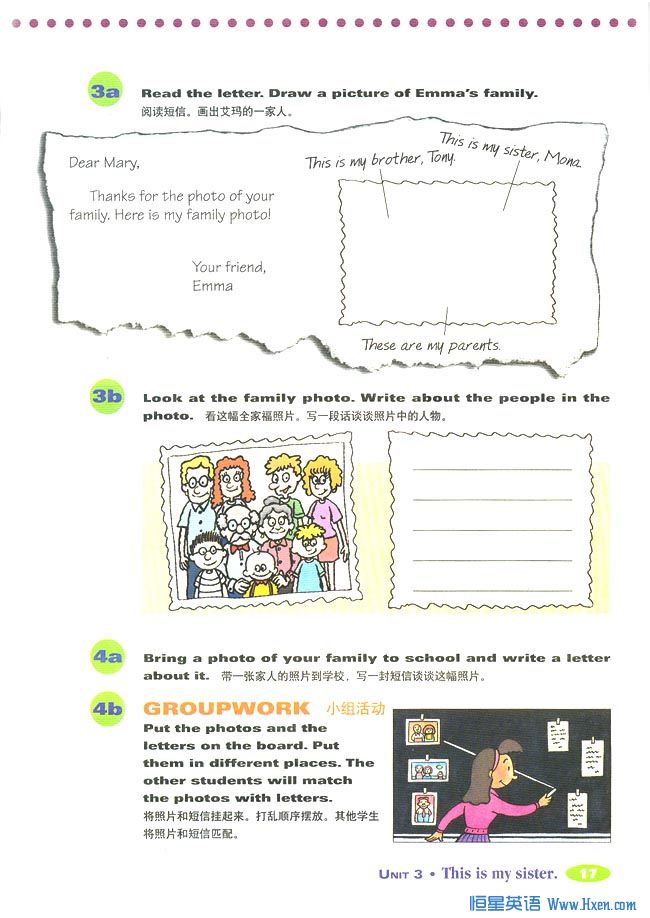 3a Read the letter. Draw a picture of Emma's family.
阅读短信。画出艾玛的一家人。
Dear Mary,
Thanks for the photo of your
family. Here is my family photo!
Your friend,
Emma
This is my brother, Tony.
This is my sister, Mona.
These are my parents.
3b Look at the family photo. Write about the people in the
photo. 看这幅全家福照片。写一段话谈谈照片中的人物。
4a Bring a photo of your family to school and write a letter
about it. 带一张家人的照片到学校，写一封短信谈谈这幅照片。
4b GROUPWORK 小组活动
Put the photos and the
letters on the board. Put
them in different places. The
other students will match
the photos with letters.
将照片和短信挂起来。打乱顺序摆放。其他学生
将照片和短信匹配。
UNIT 3 • This is my sister. 17
恒星英语 Www.Hxen.com